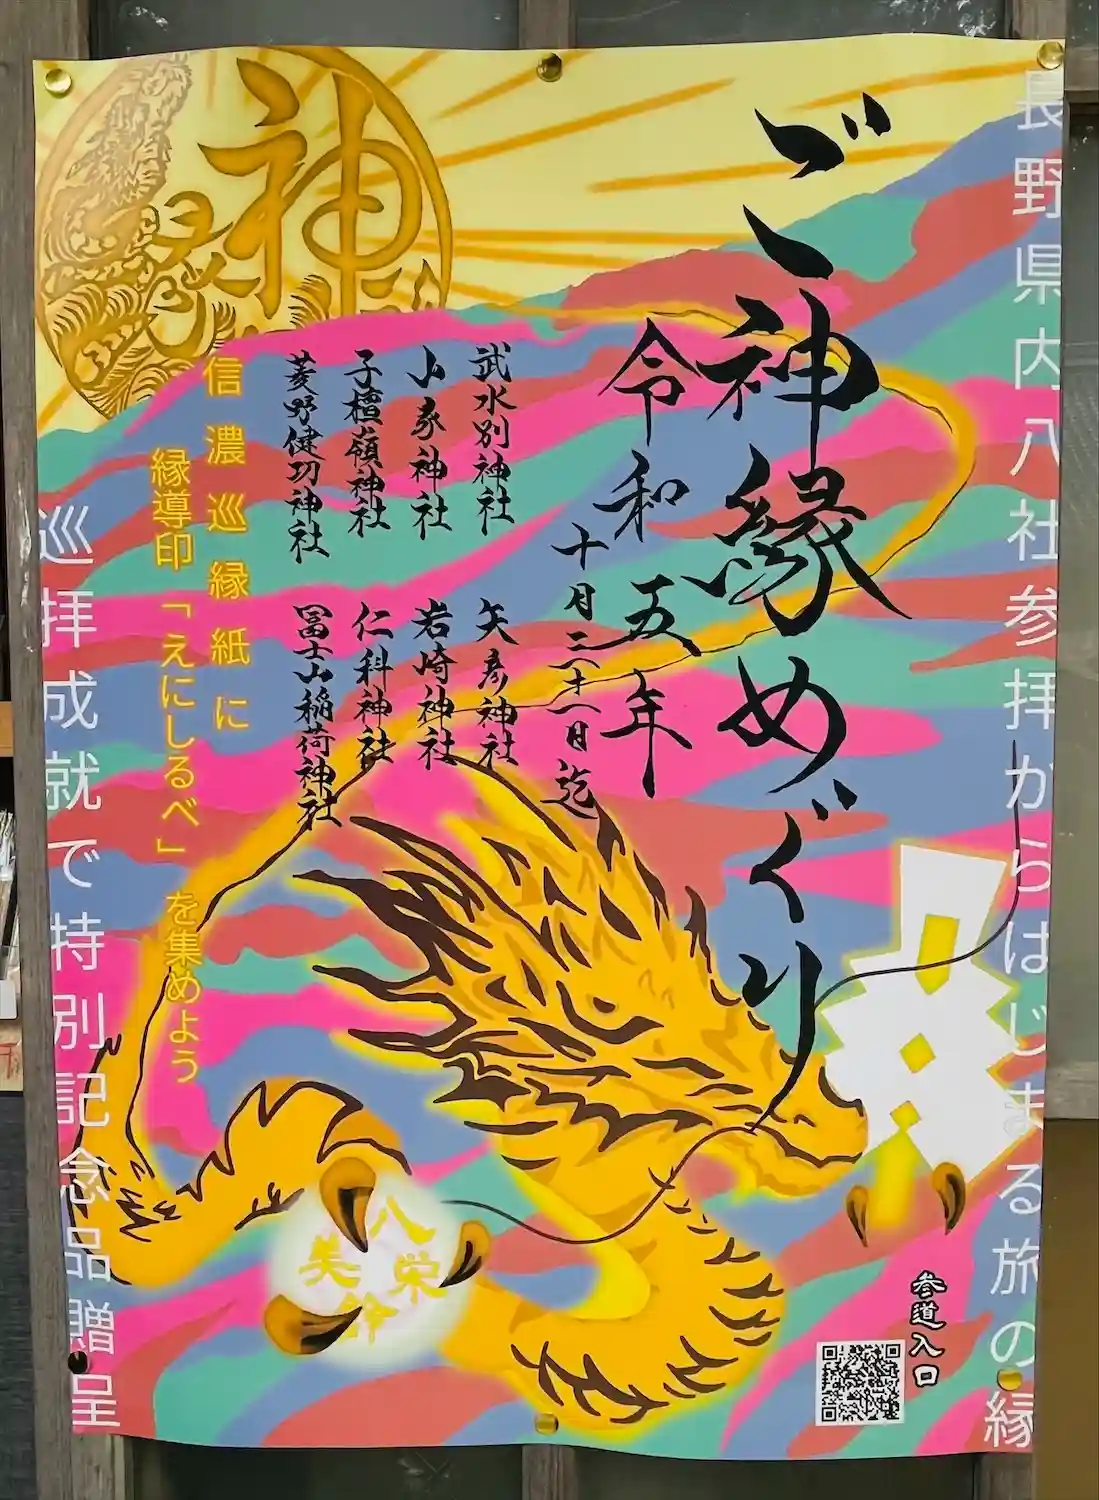 長野県内八社参拝からはじまる旅の縁
ご神縁めぐり
令和五年
十月二十八日迄
武水別神社
山家神社
子檀嶺神社
菱野健功神社
矢彦神社
岩崎神社
仁科神社
冨士山稲荷神社
神
縁
信濃巡縁紙に
縁導印「えにしるべ」を集めよう
巡拝成就で特別記念品贈呈
八栄
美
参道入口